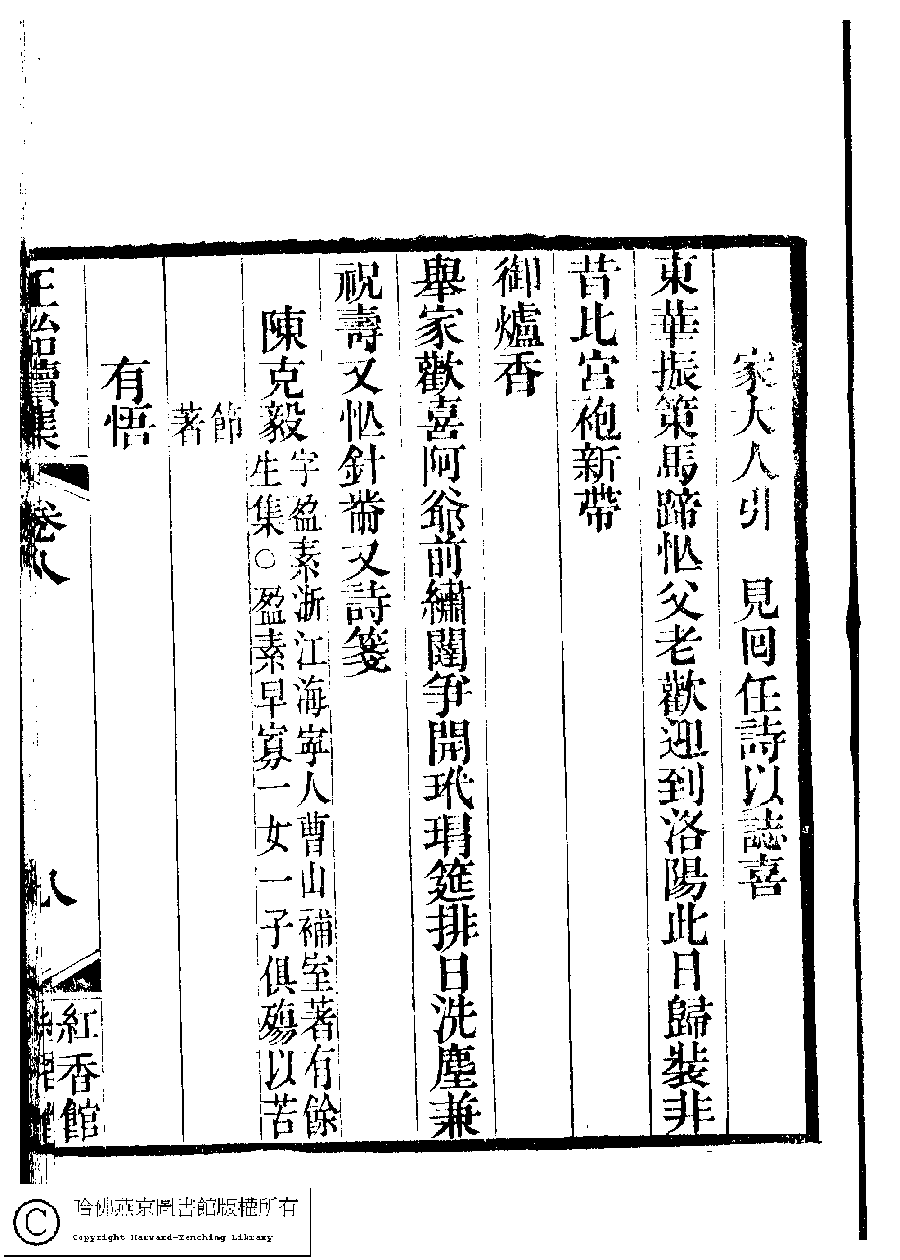 家大人引　見回任詩以誌喜
東華振策馬蹄忙父老歡迎到洛陽此日歸裝非
昔比宮袍新帶
御爐香
舉家歡喜阿爺前繡闥爭開玳瑁筵排日洗塵兼
祝壽又忙針黹又詩箋
陳克毅
字盈素浙江海寧人曹山補室著有餘
生集○盈素早寡一女一子俱殤以苦
節
著
有悟
正始續集
卷八
八
紅香館
哈佛燕京圖書館版權所有
Copyright Harvard-Yenching Library